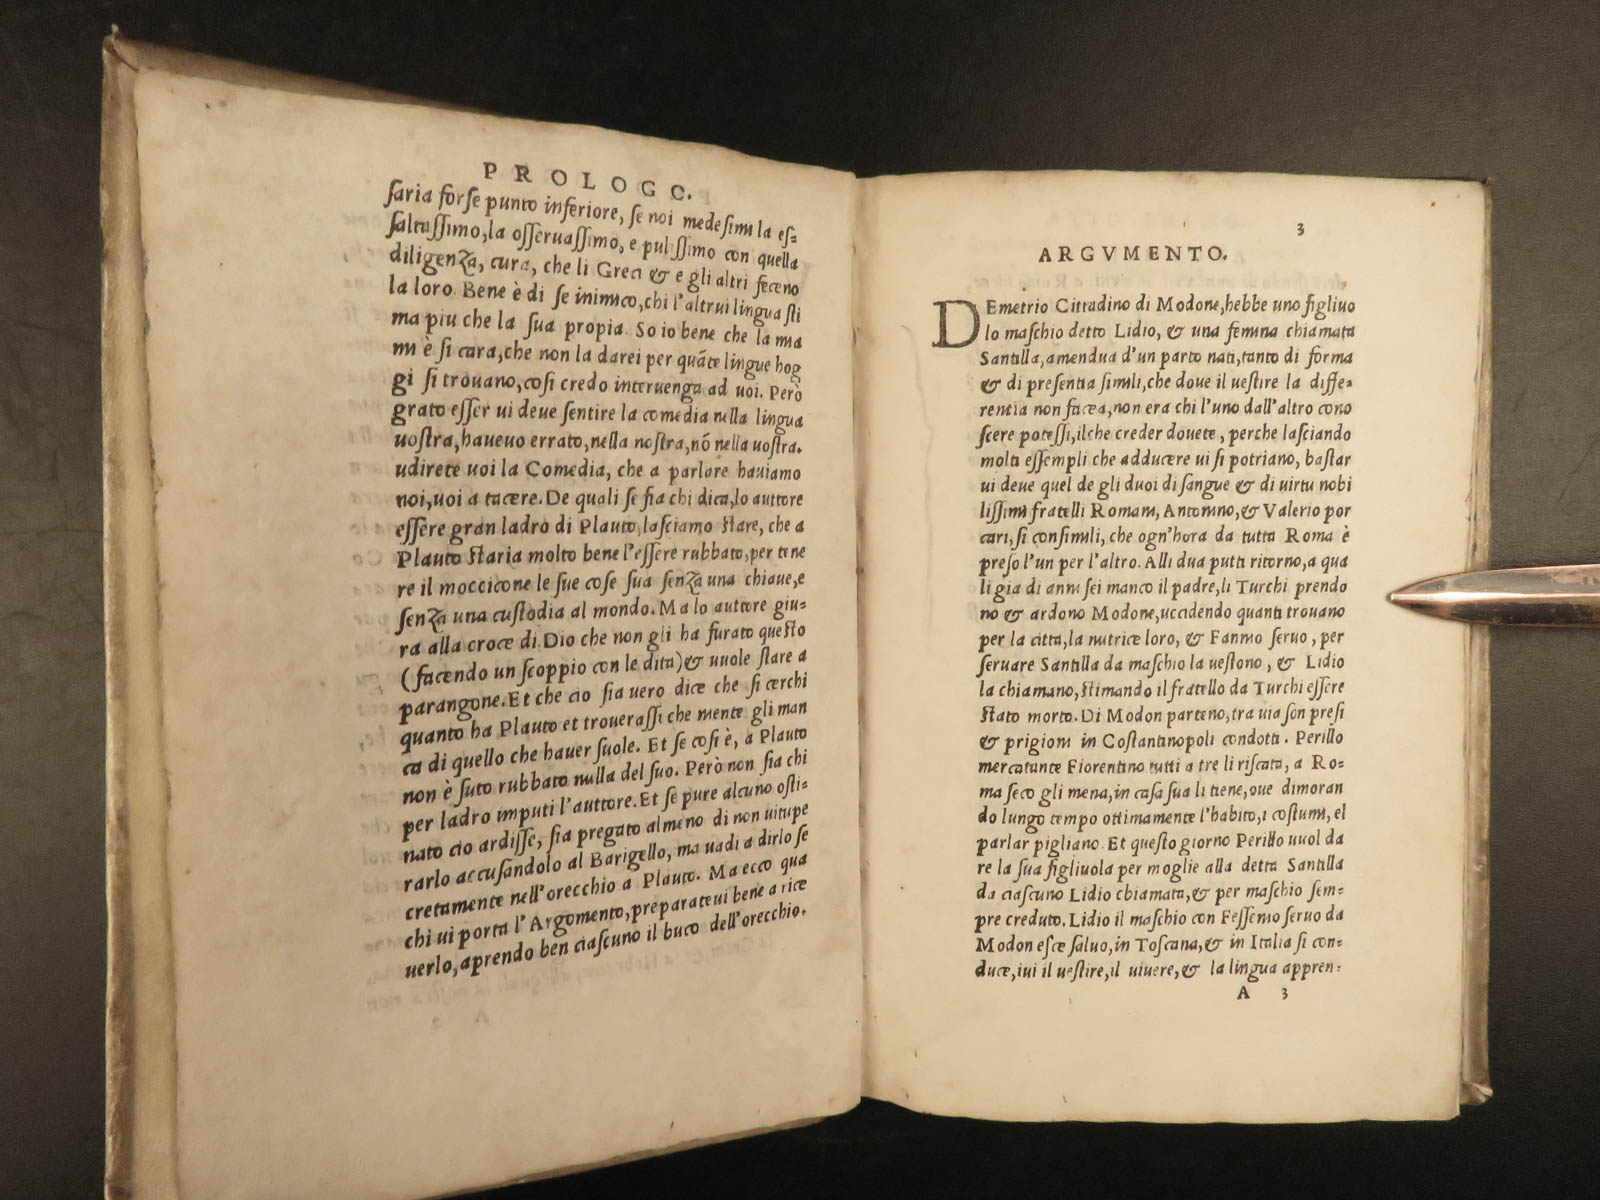 PROLOGO.
saria forse punto inferiore, se noi medesimi la es=
saltassimo, la osseruassimo, e pulissimo con quella
diligenza, cura, che li Greci & e gli altri feceno
la loro. Bene è di se inimico, chi l'altrui lingua sti
ma piu che la sua propia. So io bene che la mia
mi è si cara, che non la darei per quāte lingue hog
gi si trouano, cosi credo interuenga ad uoi. Però
grato esser ui deue sentire la comedia nella lingua
uostra, haueuo errato, nella nostra, nō nella uostra.
udirete uoi la Comedia, che a parlare habbiamo
noi, uoi a tacere. De quali se fia chi dica, lo auttore
essere gran ladro di Plauto, lasciamo stare, che a
Plauto staria molto bene l'essere rubbato, per tene
re il moccicone le sue cose sua senza una chiaue, e
senza una custodia al mondo. Ma lo auttore giu=
ra alla croce di Dio che non gli ha furato questo
(facendo un scoppio con le dita) & uuole stare a
parangone. Et che cio sia uero dice che si cerchi
quanto ha Plauto et trouerassi che niente gli man
ca di quello che hauer suole. Et se cosi è, a Plauto
non è suto rubbato nulla del suo. Però non sia chi
per ladro imputi l'auttore. Et se pure alcuno osti=
nato cio ardisse, sia pregato almeno di non uitupe
rarlo accusandolo al Barigello, ma uadi a dirlo se
cretamente nell'orecchio a Plauto. Ma ecco qua
chi ui porta l'Argomento, preparateui bene a rice
uerlo, aprendo ben ciascuno il buco dell'orecchio.
3
ARGVMENTO.
DEmetrio Cittadino di Modone, hebbe uno figliuo
lo maschio detto Lidio, & una femina chiamata
Santilla, amendua d'un parto nati, tanto di forma
& di presentia simili, che doue il uestire la diffe=
rentia non facea, non era chi l'uno dall'altro cono
scere potessi, ilche creder douete, perche lasciando
molti essempli che adducere ui si potriano, bastar
ui deue quel de gli duoi di sangue & di uirtu nobi
lissimi fratelli Romani, Antonino, & Valerio por
cari, si consimili, che ogn'hora da tutta Roma è
preso l'un per l'altro. Alli dua putti ritorno, a qua
li gia di anni sei manco il padre, li Turchi prendo
no & ardono Modone, uccidendo quanti trouano
per la citta, la nutrice loro, & Fannio seruo, per
seruare Santilla da maschio la uestono, & Lidio
la chiamano, stimando il fratello da Turchi essere
stato morto. Di Modon parteno, tra uia son presi
& prigioni in Costantinopoli condotti. Perillo
mercatante Fiorentino tutti a tre li riscata, a Ro=
ma seco gli mena, in casa sua li tiene, oue dimoran
do lungo tempo ottimamente l'habito, i costumi, el
parlar pigliano. Et questo giorno Perillo uuol da
re la sua figliuola per moglie alla detta Santilla
da ciascuno Lidio chiamata, & per maschio sem=
pre creduto. Lidio il maschio con Fessenio seruo da
Modon esce saluo, in Toscana, & in Italia si con=
duce, iui il uestire, il uiuere, & la lingua appren=
A 3